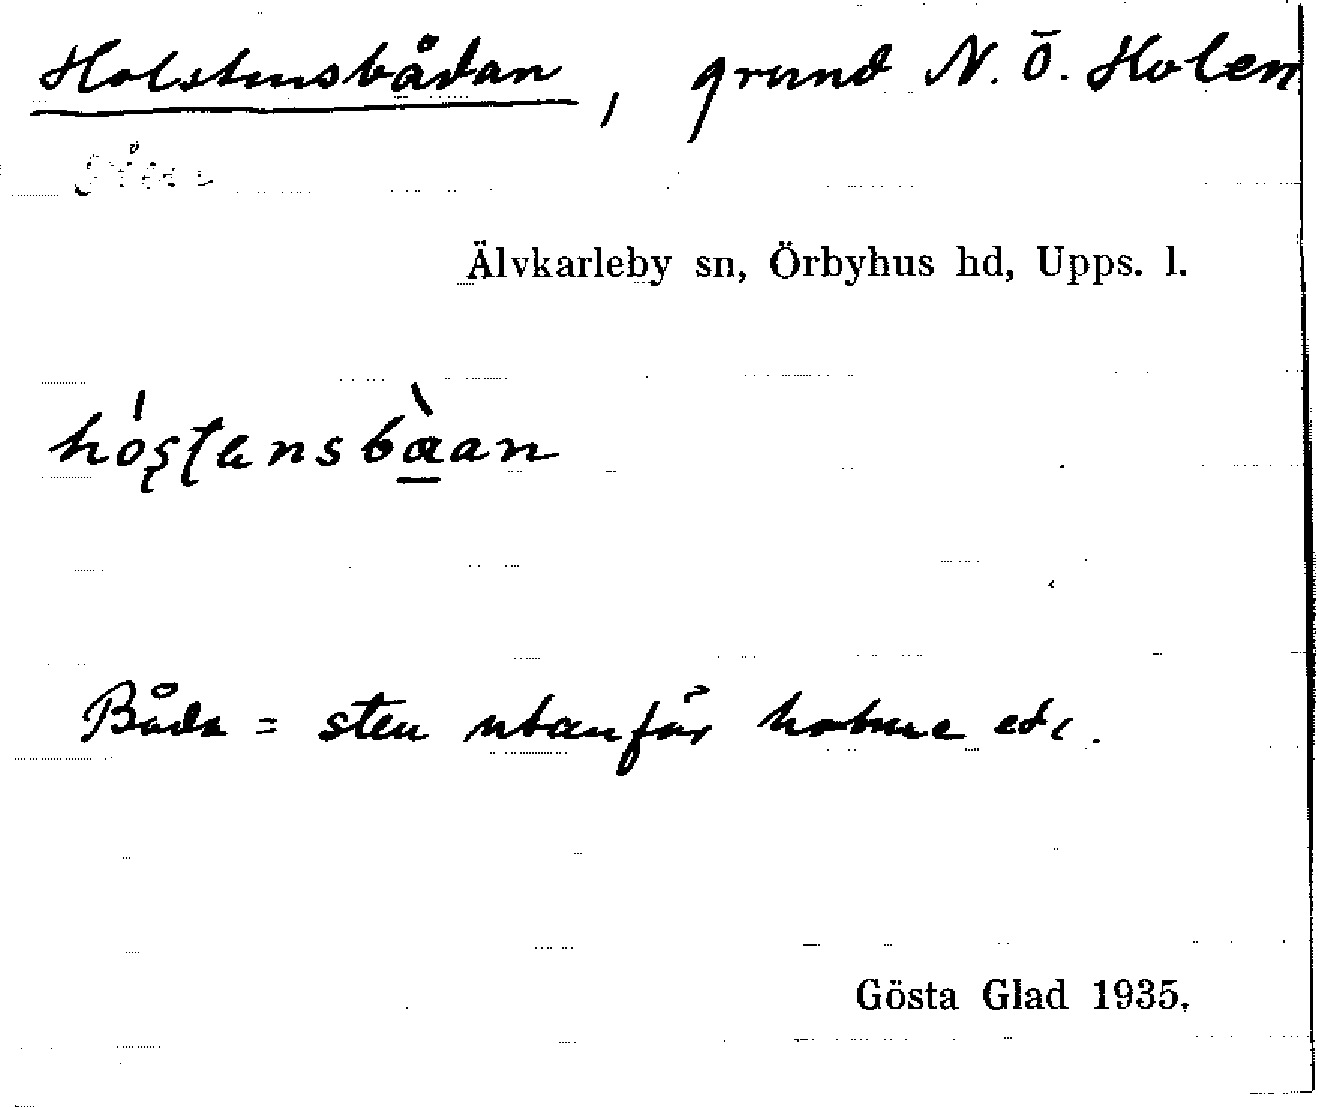 Holstensbådan, grund N. Ö. Holen
Älvkarleby sn, Örbyhus hd, Upps. l.
hóʂʈensbàan
Båda = sten utanför holme etc.
Gösta Glad 1935.